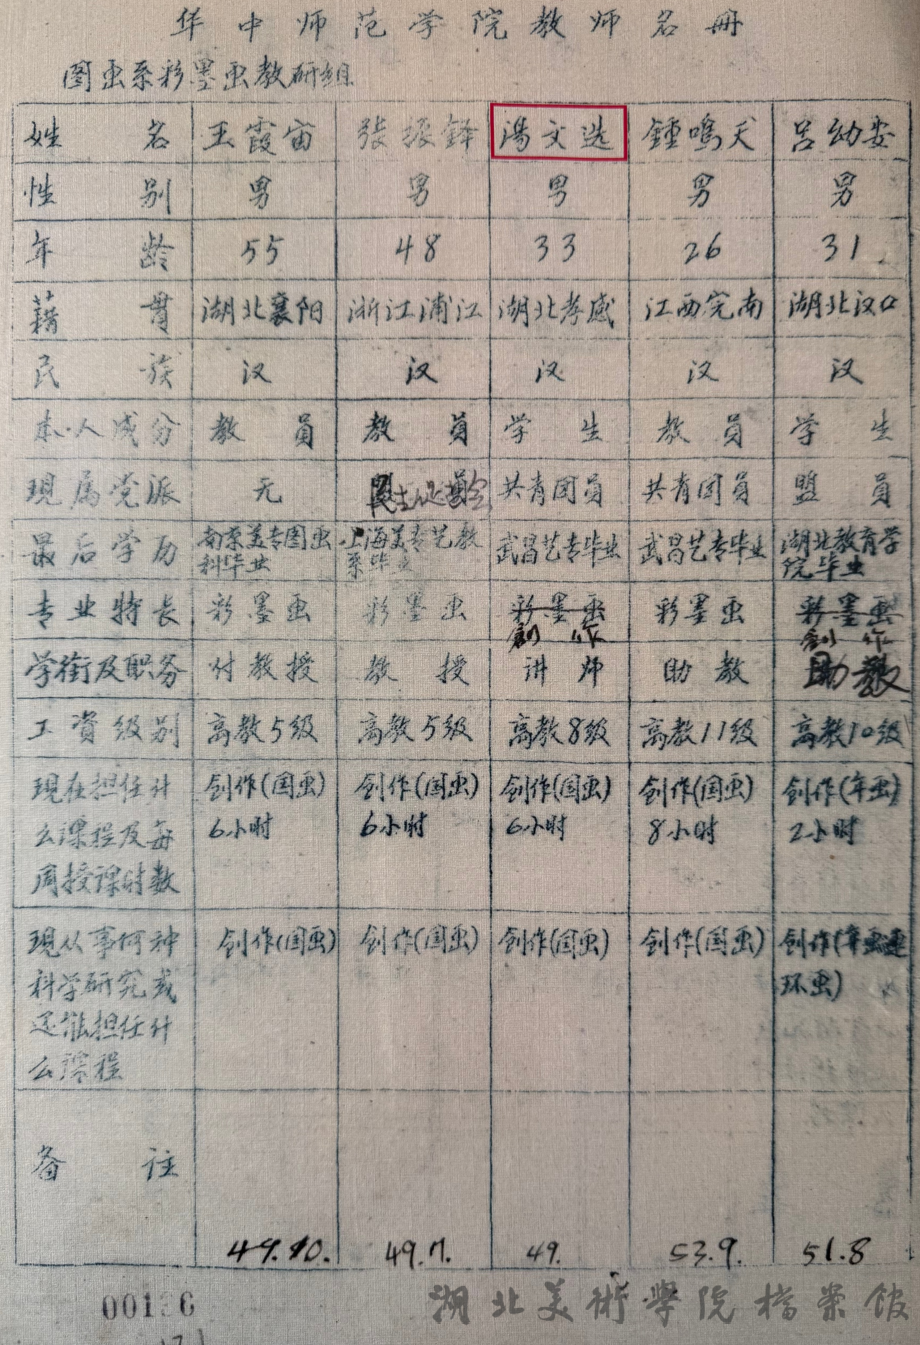 华中师范学院教师名册
图画系彩墨画教研组
姓名 王霞宙 張振鐸 湯文选 鍾鳴天 吕幼安
性别 男 男 男 男 男
年龄 55 48 33 26 31
藉貫 湖北襄阳 浙江浦江 湖北孝感 江西完南 湖北汉口
民族 汉 汉 汉 汉 汉
本人成分 教員 教員 学生 教員 学生
現属党派 无 共青团員 共青团員 盟員
最后学历 南京美专国画科毕业 上海美专艺教系毕业 武昌艺专毕业 武昌艺专毕业 湖北教育学院毕业
专业特長 彩墨画 彩墨画 彩墨画 創作 彩墨画 彩墨画 創作
学銜及职务 付教授 教授 讲师 助教 助教
工資级别 高教5级 高教5级 高教8级 高教11级 高教10级
現在担任什 创作(国画) 创作(国画) 创作(国画) 创作(国画) 创作(年画)
么課程及每 6小时 6小时 6小时 8小时 2小时
周授課时数
現从事何种 创作(国画) 创作(国画) 创作(国画) 创作(国画) 创作(年画連
科学研究或 环画)
还能担任什
么課程
备註
49.10. 49.7. 49. 53.9. 51.8
湖北美術學院檔案館